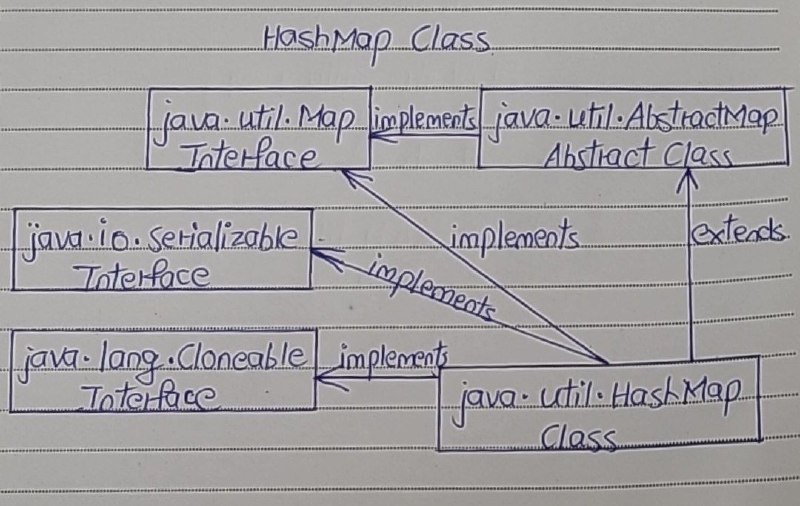 HashMap Class
java.util.Map
Interface
implements
java.util.AbstractMap
Abstract Class
java.io.Serializable
Interface
implements
implements
extends
java.lang.Cloneable
Interface
implements
java.util.HashMap
Class